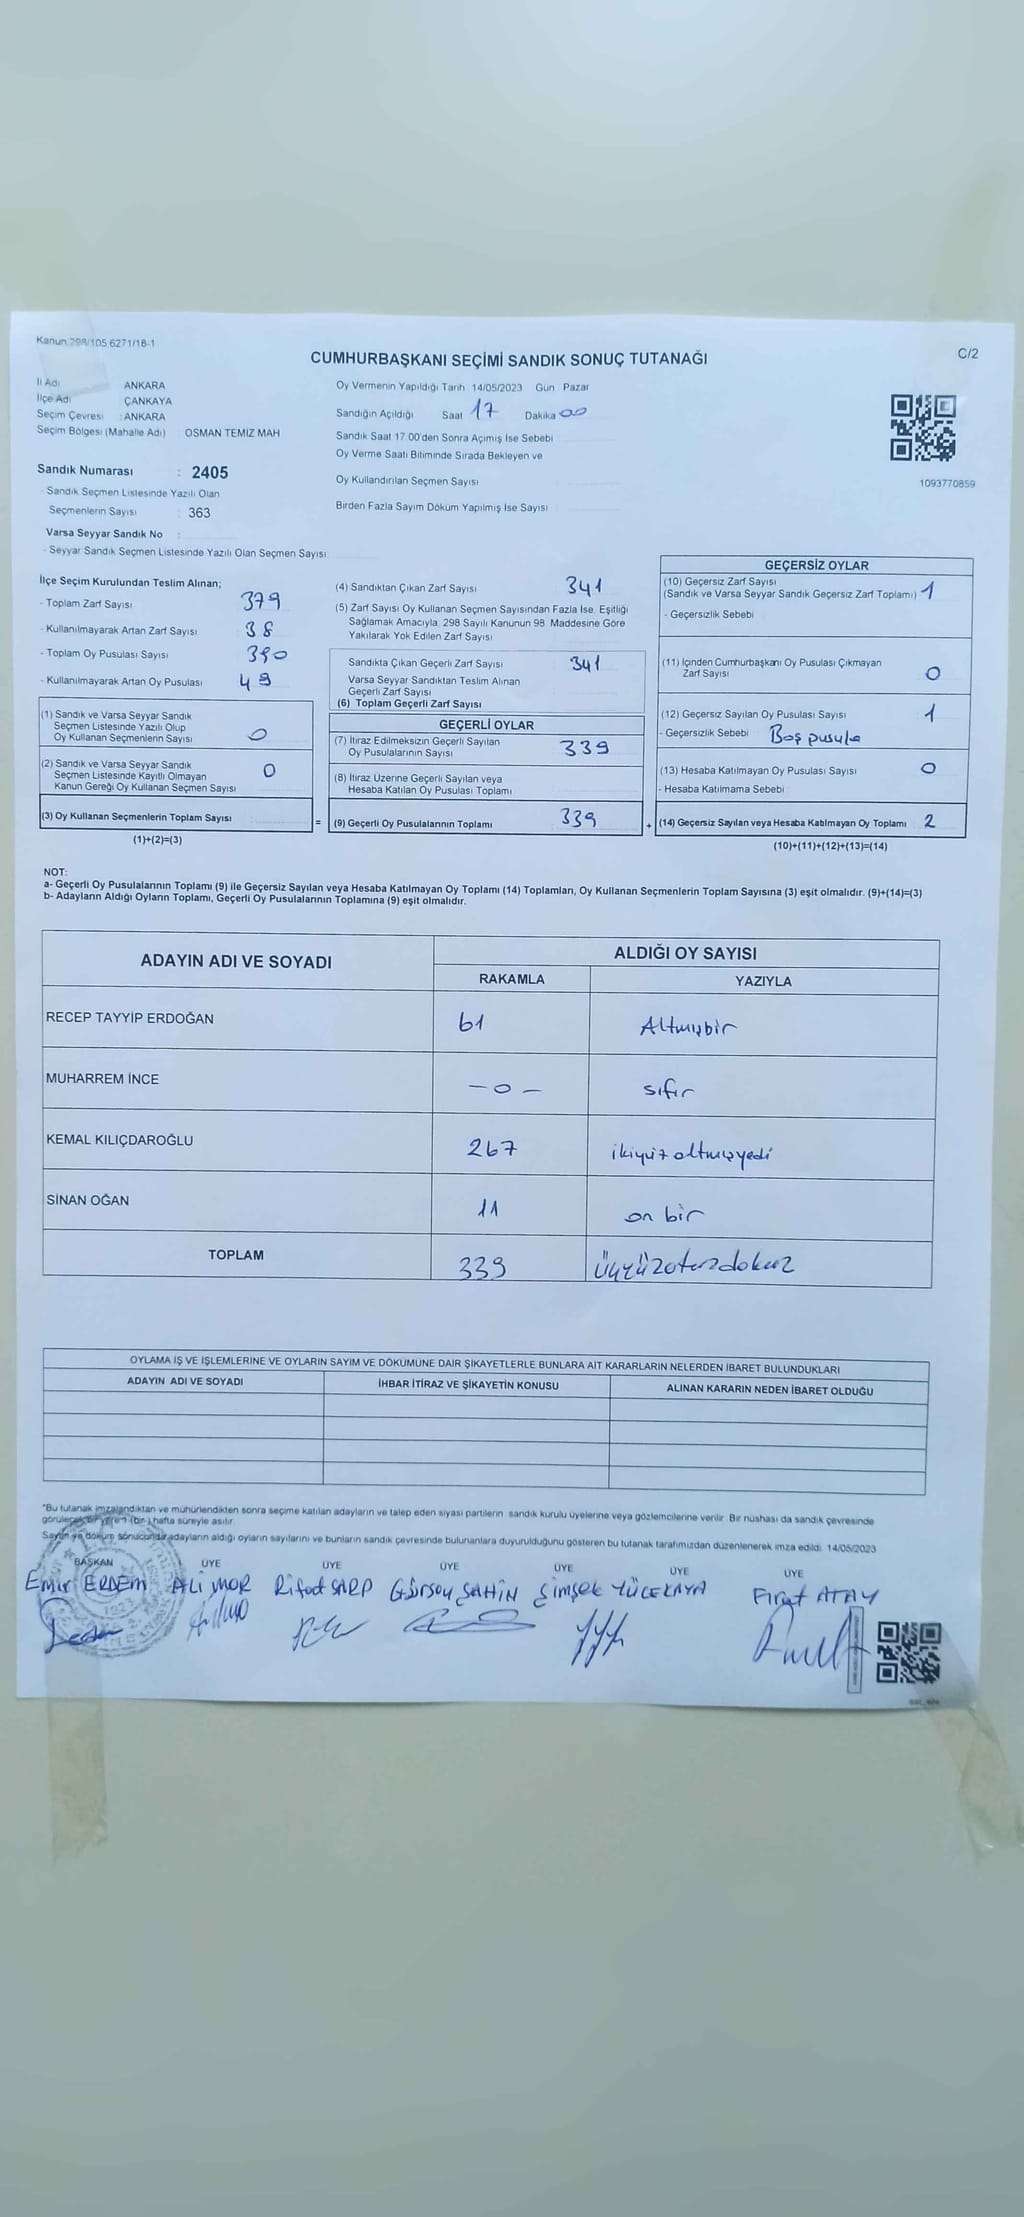 Kanun 298/105,6271/18-1
C/2
CUMHURBAŞKANI SEÇİMİ SANDIK SONUÇ TUTANAĞI
İl Adı ANKARA
İlçe Adı ÇANKAYA
Seçim Çevresi : ANKARA
Seçim Bölgesi (Mahalle Adı) OSMAN TEMİZ MAH
Sandık Numarası : 2405
- Sandık Seçmen Listesinde Yazılı Olan
Seçmenlerin Sayısı : 363
Varsa Seyyar Sandık No :
- Seyyar Sandık Seçmen Listesinde Yazılı Olan Seçmen Sayısı
Oy Vermenin Yapıldığı Tarih 14/05/2023 Gün Pazar
Sandığın Açıldığı Saat 17 Dakika 00
Sandık Saat 17 00'den Sonra Açımış İse Sebebi
Oy Verme Saati Bitiminde Sırada Bekleyen ve
Oy Kullandırılan Seçmen Sayısı
Birden Fazla Sayım Döküm Yapılmış İse Sayısı
1093770859
İlçe Seçim Kurulundan Teslim Alınan;
- Toplam Zarf Sayısı 379
- Kullanılmayarak Artan Zarf Sayısı 38
- Toplam Oy Pusulası Sayısı 390
- Kullanılmayarak Artan Oy Pusulası 49
(1) Sandık ve Varsa Seyyar Sandık
Seçmen Listesinde Yazılı Olup
Oy Kullanan Seçmenlerin Sayısı 0
(2) Sandık ve Varsa Seyyar Sandık
Seçmen Listesinde Kayıtlı Olmayan
Kanun Gereği Oy Kullanan Seçmen Sayısı 0
(3) Oy Kullanan Seçmenlerin Toplam Sayısı
(1)+(2)=(3)
=
(4) Sandıktan Çıkan Zarf Sayısı 341
(5) Zarf Sayısı Oy Kullanan Seçmen Sayısından Fazla İse, Eşitliği
Sağlamak Amacıyla, 298 Sayılı Kanunun 98. Maddesine Göre
Yakılarak Yok Edilen Zarf Sayısı
Sandıkta Çıkan Geçerli Zarf Sayısı 341
Varsa Seyyar Sandıktan Teslim Alınan
Geçerli Zarf Sayısı
(6) Toplam Geçerli Zarf Sayısı
GEÇERLİ OYLAR
(7) İtiraz Edilmeksizin Geçerli Sayılan
Oy Pusulalarının Sayısı 339
(8) İtiraz Üzerine Geçerli Sayılan veya
Hesaba Katılan Oy Pusulası Toplamı
(9) Geçerli Oy Pusulalarının Toplamı 339
+
GEÇERSİZ OYLAR
(10) Geçersiz Zarf Sayısı
(Sandık ve Varsa Seyyar Sandık Geçersiz Zarf Toplamı) 1
- Geçersizlik Sebebi
(11) İçinden Cumhurbaşkanı Oy Pusulası Çıkmayan
Zarf Sayısı 0
(12) Geçersiz Sayılan Oy Pusulası Sayısı 1
- Geçersizlik Sebebi Boş pusula
(13) Hesaba Katılmayan Oy Pusulası Sayısı 0
- Hesaba Katılmama Sebebi
(14) Geçersiz Sayılan veya Hesaba Katılmayan Oy Toplamı 2
(10)+(11)+(12)+(13)=(14)
NOT:
a- Geçerli Oy Pusulalarının Toplamı (9) ile Geçersiz Sayılan veya Hesaba Katılmayan Oy Toplamı (14) Toplamları, Oy Kullanan Seçmenlerin Toplam Sayısına (3) eşit olmalıdır. (9)+(14)=(3)
b- Adayların Aldığı Oyların Toplamı, Geçerli Oy Pusulalarının Toplamına (9) eşit olmalıdır.
ADAYIN ADI VE SOYADI
ALDIĞI OY SAYISI
RAKAMLA YAZIYLA
RECEP TAYYİP ERDOĞAN 61 Altmışbir
MUHARREM İNCE —0— sıfır
KEMAL KILIÇDAROĞLU 267 ikiyüzaltmışyedi
SİNAN OĞAN 11 on bir
TOPLAM 339 Üçyüzotuzdokuz
OYLAMA İŞ VE İŞLEMLERİNE VE OYLARIN SAYIM VE DÖKÜMÜNE DAİR ŞİKAYETLERLE BUNLARA AİT KARARLARIN NELERDEN İBARET BULUNDUKLARI
ADAYIN ADI VE SOYADI İHBAR İTİRAZ VE ŞİKAYETİN KONUSU ALINAN KARARIN NEDEN İBARET OLDUĞU
*Bu tutanak imzalandıktan ve mühürlendikten sonra seçime katılan adayların ve talep eden siyasi partilerin sandık kurulu üyelerine veya gözlemcilerine verilir. Bir nüshası da sandık çevresinde
görülecek bir yere 1 (bir) hafta süreyle asılır.
Sayım ve döküm sonucunda adayların aldığı oyların sayılarını ve bunların sandık çevresinde bulunanlara duyurulduğunu gösteren bu tutanak tarafımızdan düzenlenerek imza edildi. 14/05/2023
BAŞKAN ÜYE ÜYE ÜYE ÜYE ÜYE ÜYE
Emir ERDEM ALİ MOR Rifat SARP Gürsoy ŞAHİN Şimşek YÜCEKAYA Fırat ATAY